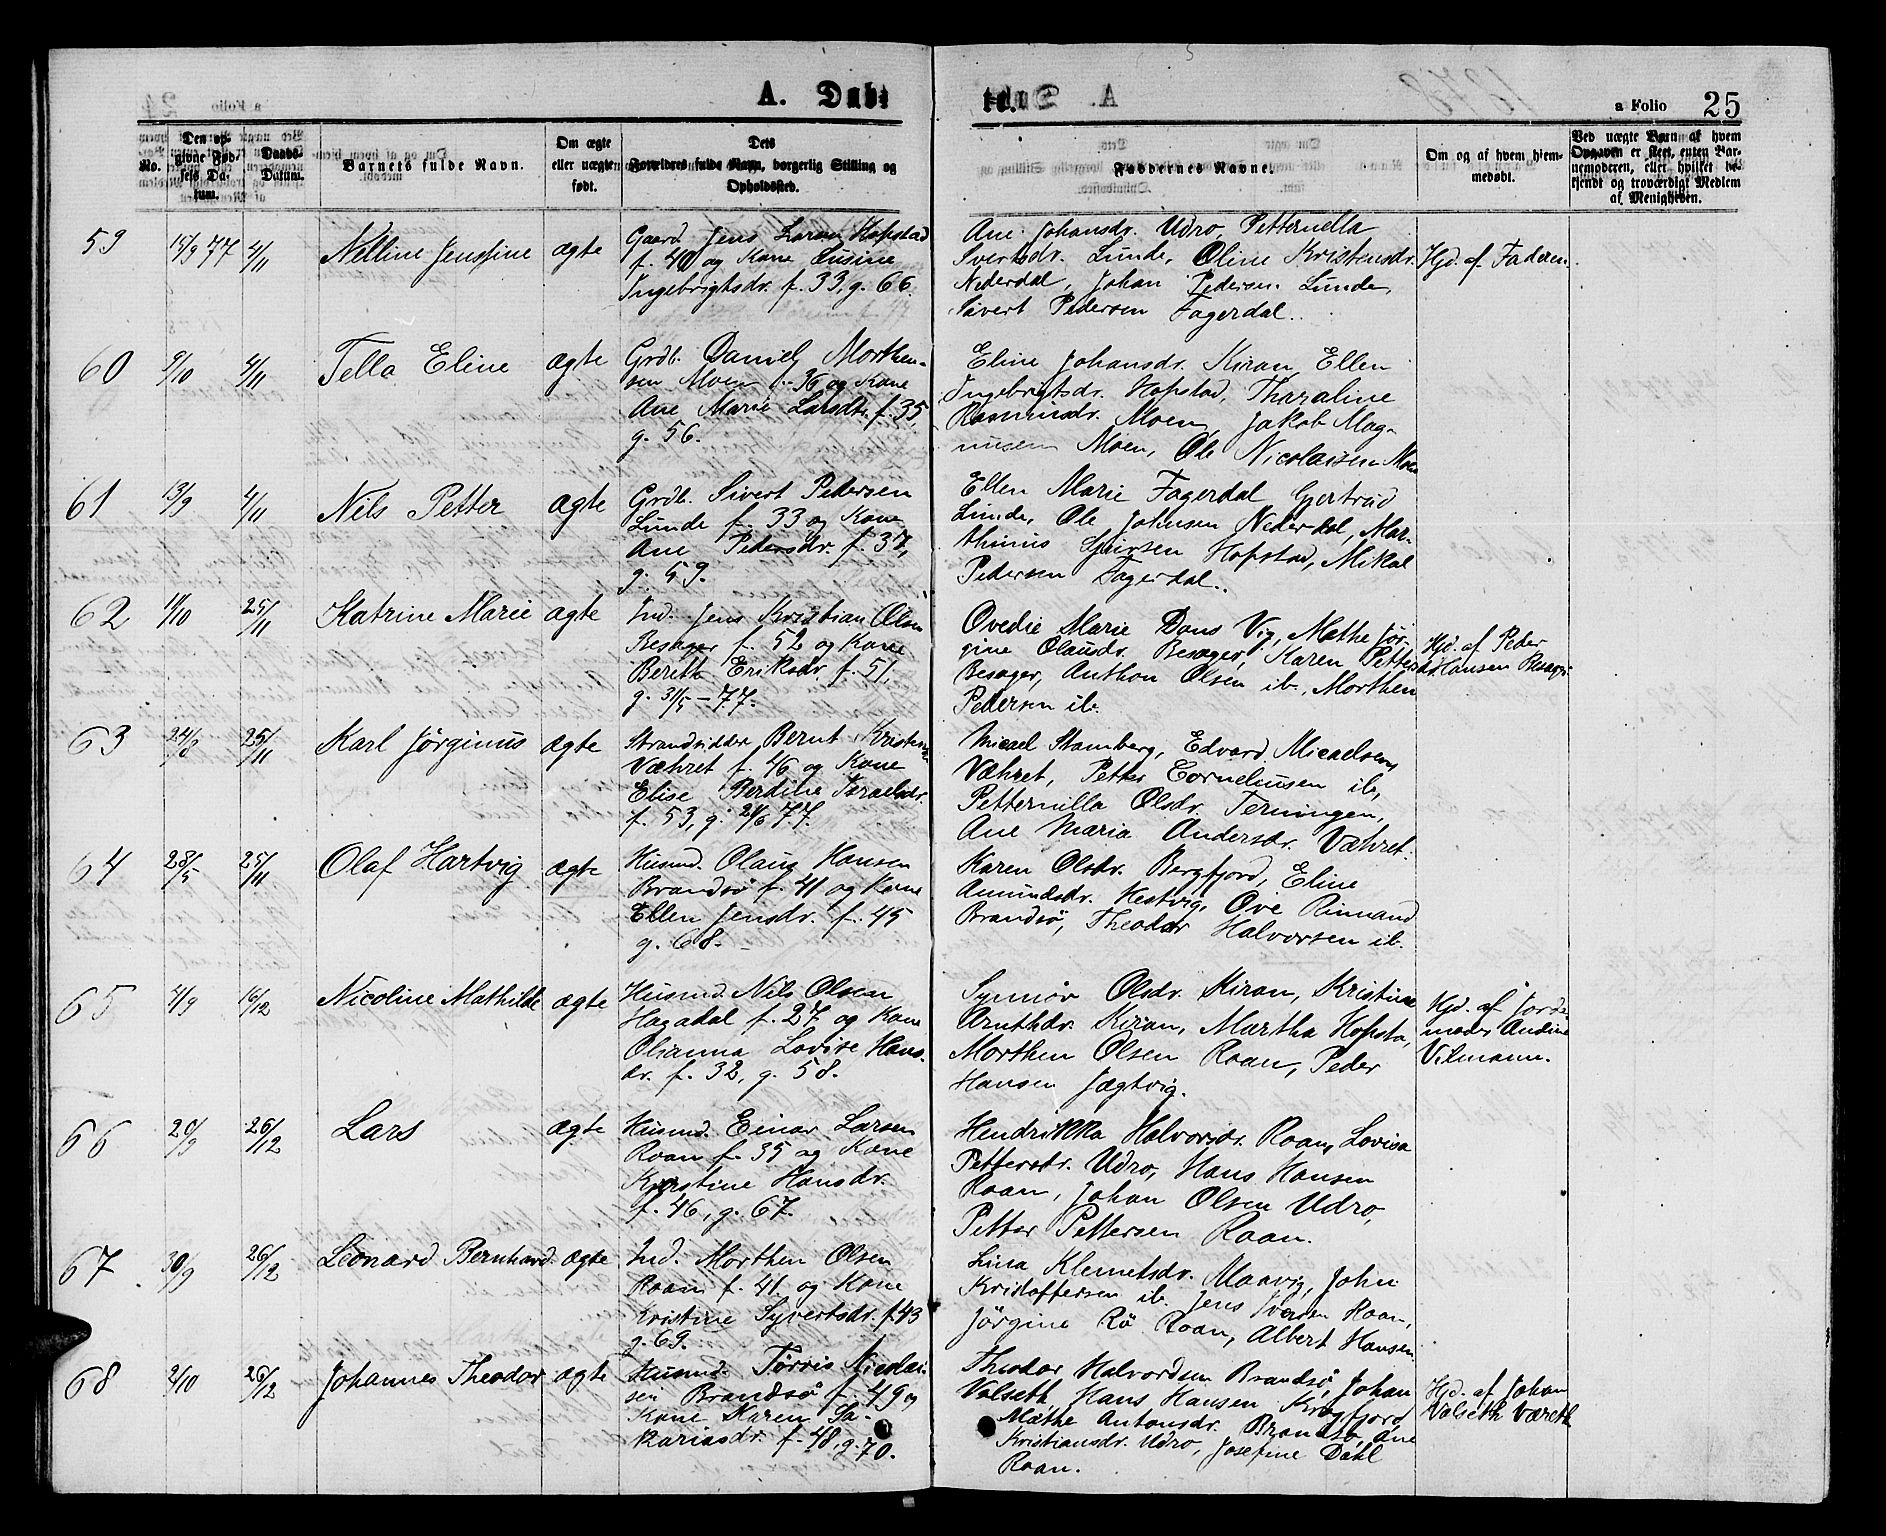 A. Døbte.
a Folio 25
No.
Den opgivne Fødsels Datum.
Daabs-Datum.
Barnets fulde Navn.
Om ægte eller uægte født.
Dets Forældres fulde Navn, borgerlig Stilling og Opholdssted.
Faddernes Navne.
Om og af hvem hjemmedøbt.
Ved uægte Barn af hvem Opgaven er skeet, enten Barnemoderen, eller hvilket bekjendt og troværdigt Medlem af Menigheden.
59 15/9 77 4/11 Nelline Jensine ægte
Gaard. Jens Larsen Hofstad
f. 40 og Kone Gusine
Ingebrigtsdr. f. 33, g. 66.
Ane Johansdr. Udro, Petternella
Sivertsdr. Lunde, Oline Kristensdr.
Nederdal, Johan Pedersen Lunde,
Sivert Pedersen Fagerdal.
Hjd. af Faderen.
60 9/10 4/11 Tella Eline ægte
Grdb. Daniel Morthen-
sen Moen f. 36 og Kone
Ane Marie Larsdtr. f. 35,
g. 56.
Eline Johansdr. Kiran, Ellen
Ingebrigtsdr. Hofstad, Tharaline
Rasmusdr. Moen, Jakob Mag-
nusen Moen, Ole Nicolaisen Moen
61 13/9 4/11 Nils Petter ægte
Grdb. Sivert Pedersen
Lunde f. 33 og Kone
Ane Pedersdr. f. 37,
g. 59.
Ellen Marie Fagerdal, Gjertrud
Lunde, Ole Johnsen Nederdal, Mar-
thinus Sjursen Hofstad, Mikal
Pedersen Fagerdal.
62 11/10 25/11 Katrine Marie ægte
Ind. Jens Kristian Olsen
Besager f. 52 og Kone
Bereth Eriksdr. f. 51,
g. 31/5 - 77.
Ovedie Marie Dons Vig, Mathe Jør-
gine Olausdr. Besager, Karen Petters
Besager, Anthon Olsen ib., Morthen
Pedersen ib.
Hjd. af Peder
Hansen Besager
63 24/8 25/11 Karl Jørginus ægte
Strandsidder Bernt Kristens
Væhret f. 46 og Kone
Elise Berdine Israelsdr.
f. 53, g. 24/6 77.
Micael Stamberg, Edvard Micaelsen
Væhret, Petter Corneliusen ib,
Petternilla Olsdr. Terningen,
Ane Maria Andersdr. Væhret.
64 28/5 25/11 Olaf Hartvig ægte
Husmd. Olaus Hansen
Brandsø f. 41 og Kone
Ellen Jensdr. f. 45
g. 68.
Karen Olsdr. Bergfjord, Eline
Amundsdr. Hestvig, Ove Rinnand
Brandsö, Theodor Halvorsen ib.
65 4/9 16/12 Nicoline Mathilde ægte
Husmd. Nils Olsen
Hagadal f. 27 og Kone
Olianna Lovise Hans-
dr. f. 32, g. 58.
Synnøv Olsdr. Kiran, Kristine
Arnthdr. Kiran, Martha Hofsta,
Morthen Olsen Roan, Peder
Hansen Jægtvig.
Hjd. af Jorde-
moder Andine
Vilmann.
66 20/9 26/12 Lars ægte
Husmd. Einar Larsen
Roan f. 35 og Kone
Kjerstine Hansdr.
f. 46, g. 67.
Hendrikka Halvorsdr. Roan, Lovisa
Pettersdr. Udro, Hans Hansen
Roan, Johan Olsen Udro,
Petter Pettersen Roan.
67 30/9 26/12 Leonard Bernhard ægte
Ind. Morthen Olsen
Roan f. 41. og Kone
Kristine Syvertsdr. f. 43
g. 69.
Lina Klemetsdr. Maavig, John
Kristoffersen ib. Jens Iversen Roan,
Jørgine Rø Roan, Albert Hansen
68 2/10 26/12 Johannes Theodor ægte
Husmd. Tørris Nicolai-
sen Brandsø f. 49 og
Kone Karen Sa-
kariasdr. f. 48, g. 70.
Theodor Halvordsen Brandsø, Johan
Valseth, Hans Hansen Krogfjord,
Mathe Antonsdr. Brandsø, Ane
Kristiansdr. Udro, Josefine Dahl
Roan.
Hjd. af Johan
Valseth Væreth